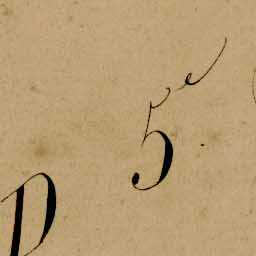 D 5e